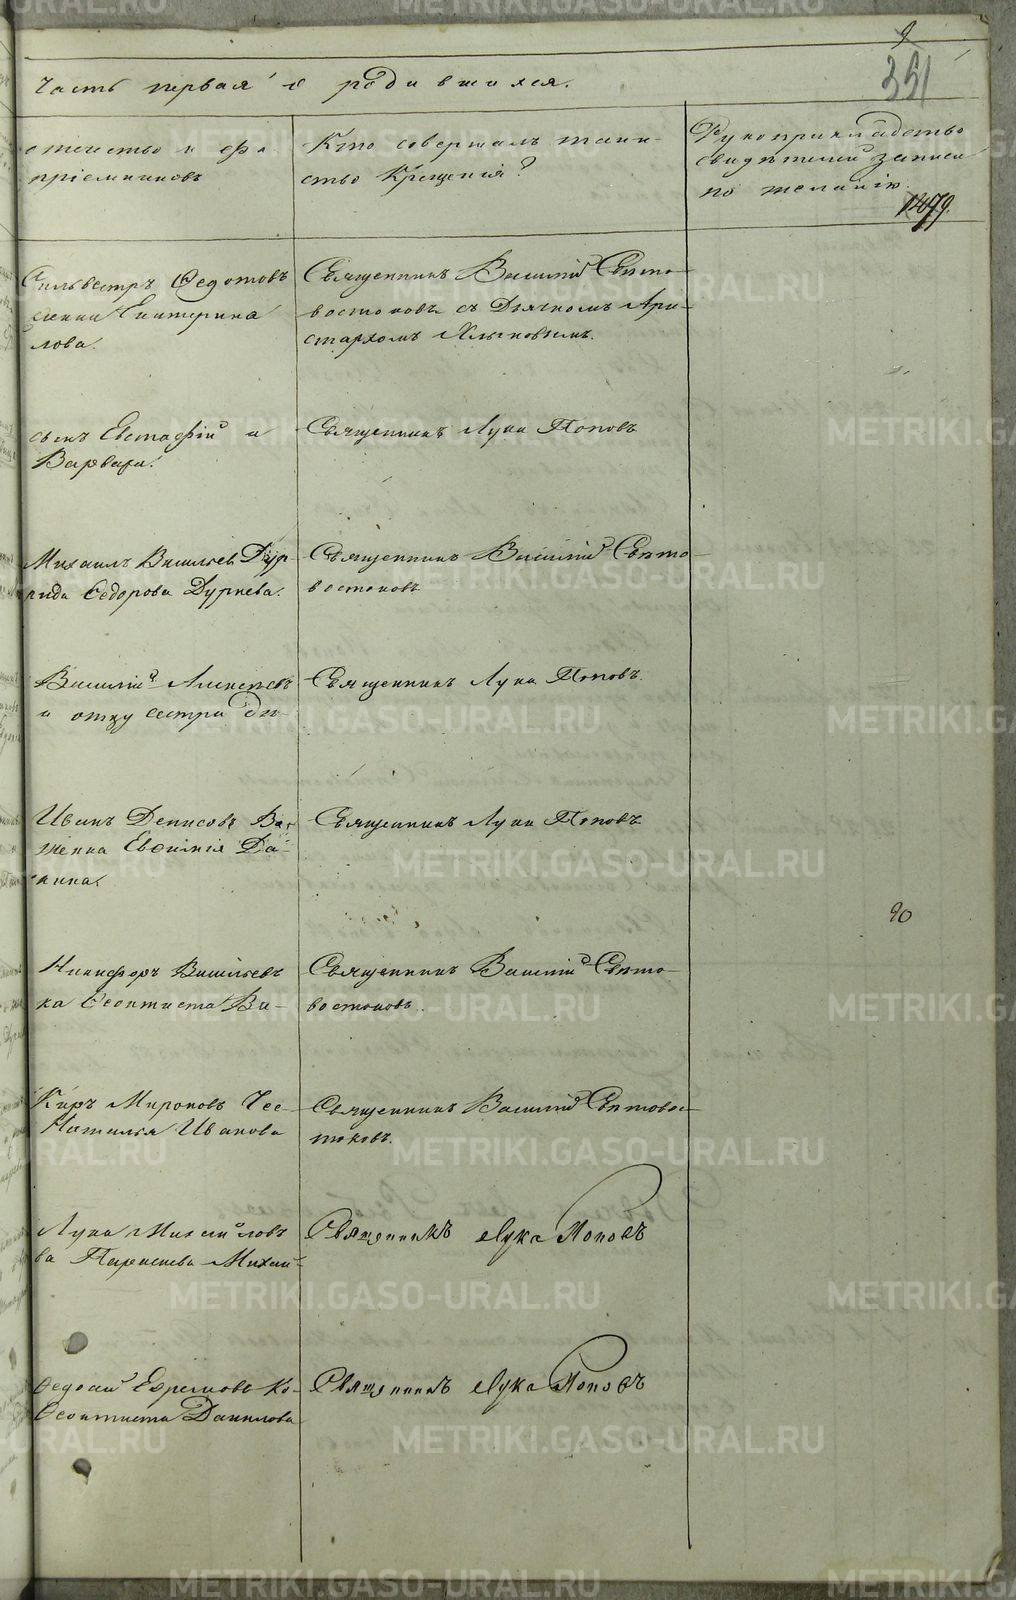 9
351
Часть первая о родившихся.
отчество и фа-
пріемниковъ
Кто совершалъ таин-
ство Крещенія?
Рукоприкладство
свидѣтелей записи
по желанію.
Сильвестръ Федотовъ
Екатерина
лова.
Священникъ Василій Свѣто-
востоковъ съ Дьячкомъ Ари-
стархомъ
Евстафій и
Варвара.
Священникъ Лука Поповъ
Михаилъ Васильевъ Дур-
Федорова Дурнева.
Священникъ Василій Свѣто-
востоковъ
Василій Алексѣевъ
и отцу сестра дѣ-
Священникъ Лука Поповъ.
Иванъ Денисовъ Ва-
женка Евфимія Да-
Священникъ Лука Поповъ
90
Никифоръ Васильевъ
ка Феоктиста Ва-
Священникъ Василій Свѣто-
востоковъ.
Киръ Мироновъ Чес-
Наталья Иванова
Священникъ Василій Свѣтовос-
токовъ.
Лука Михайловъ
ва Параскева Михай-
Священникъ Лука Поповъ
Федосій Ефремовъ Ко-
Феоктиста Данилова
Священникъ Лука Поповъ
METRIKI.GASO-URAL.RU